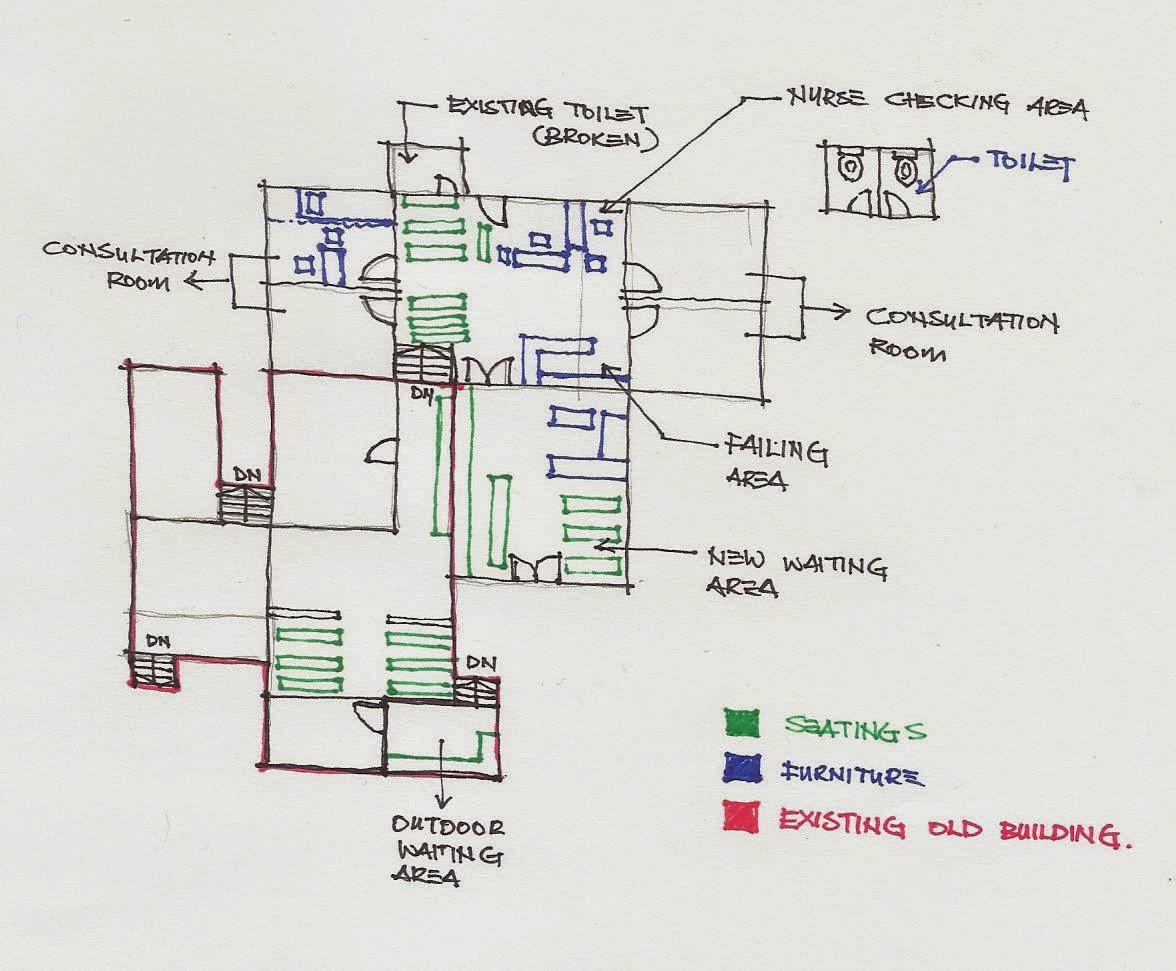 EXISTING TOILET
(BROKEN)
NURSE CHECKING AREA
TOILET
CONSULTATION
ROOM
CONSULTATION
ROOM
DN
FAILING
AREA
DN
NEW WAITING
AREA
DN
DN
SEATINGS
FURNITURE
EXISTING OLD BUILDING.
OUTDOOR
WAITING
AREA